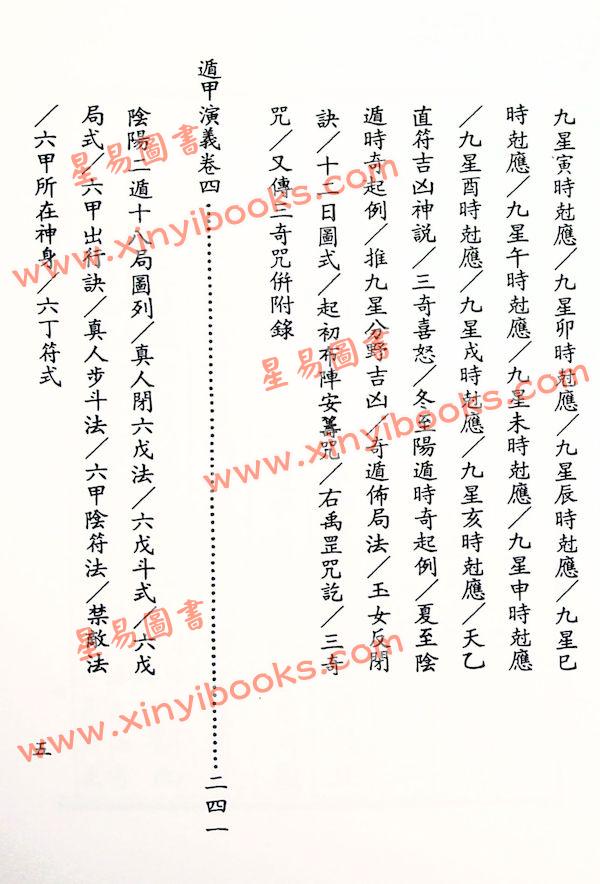 九星寅時尅應／九星卯時尅應／九星辰時尅應／九星巳
時尅應／九星午時尅應／九星未時尅應／九星申時尅應
／九星酉時尅應／九星戌時尅應／九星亥時尅應／天乙
直符吉凶神説／三奇喜怒／冬至陽遁時奇起例／夏至陰
遁時奇起例／推九星分野吉凶／奇遁佈局法／玉女反閉
訣／十二日圖式／起初布陣安籌咒／右禹罡咒訖／三奇
咒／又傳三奇咒併附錄
遁甲演義卷四……………………二四一
陰陽二遁十八局圖列／真人閉六戊法／六戊斗式／六戊
局式／六甲出行訣／真人步斗法／六甲陰符法／禁敵法
／六甲所在神身／六丁符式
五
星易圖書
www.xinyibooks.com
星易圖書
www.xinyibooks.com
星易圖書
www.xinyibooks.com